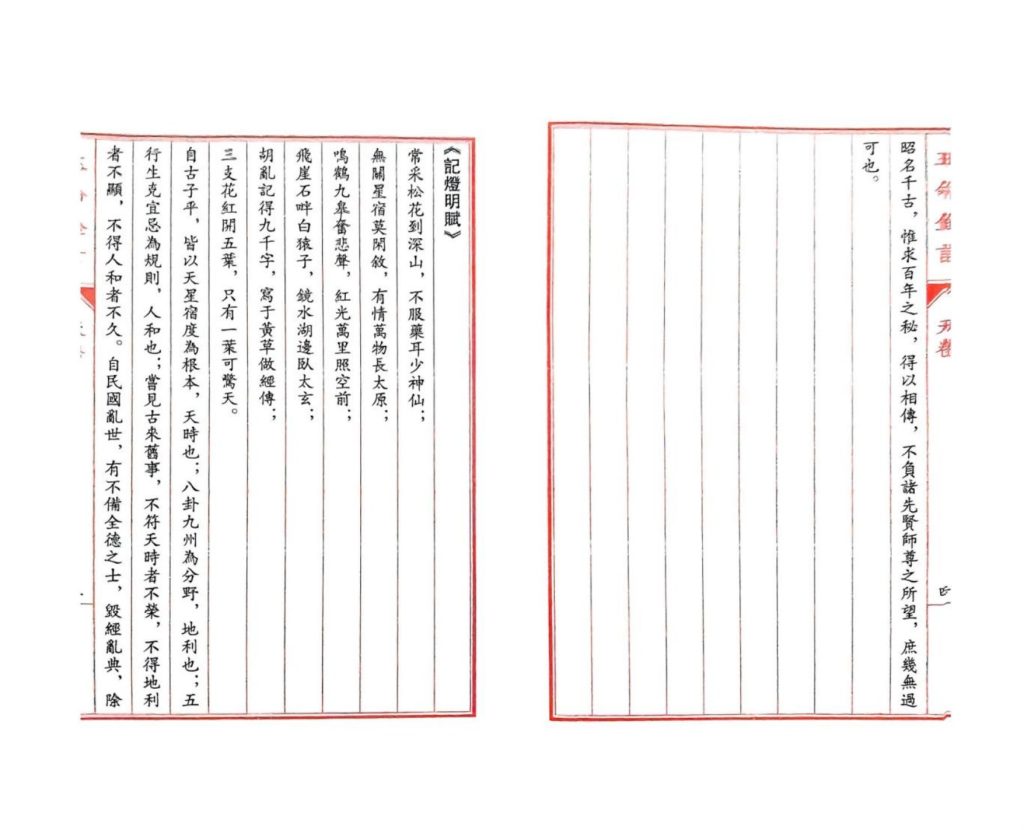 昭名千古，惟求百年之秘，得以相傳，不負諸先賢師尊之所望，庶幾無過
可也。
《記燈明賦》
常采松花到深山，不服藥耳少神仙；
無關星宿莫閑敘，有情萬物長太原；
鳴鶴九皋奮悲聲，紅光萬里照空前；
飛崖石畔白猿子，鏡水湖邊臥太玄；
胡亂記得九千字，寫于黃草做經傳；
三支花紅開五葉，只有一葉可驚天。
自古子平，皆以天星宿度為根本，天時也；八卦九州為分野，地利也；五
行生克宜忌為規則，人和也；嘗見古來舊事，不符天時者不榮，不得地利
者不顯，不得人和者不久。自民國亂世，有不備全德之士，毀經亂典，除